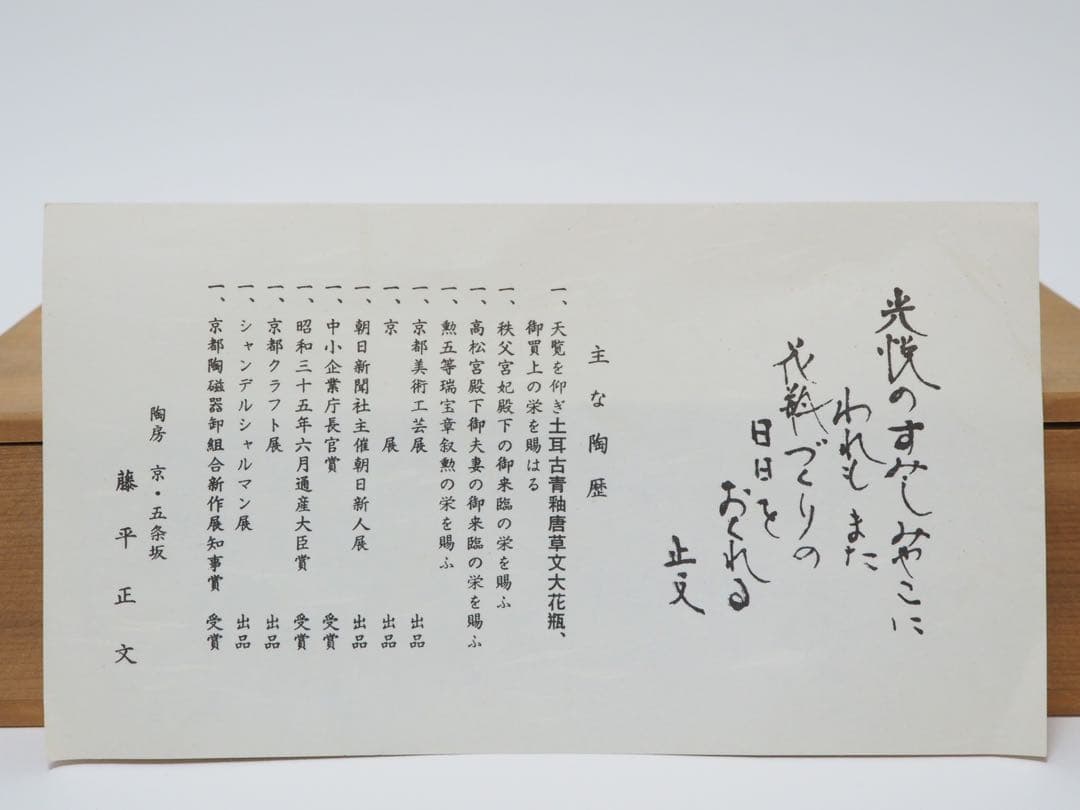 光悦のすみしみやこに
われもまた
花瓶づくりの
日日を
おくれる
正文
主な陶歴
一、天覧を仰ぎ土耳古青釉唐草文大花瓶、
御買上の栄を賜はる
一、秩父宮妃殿下の御来臨の栄を賜ふ
一、高松宮殿下御夫妻の御来臨の栄を賜ふ
一、勲五等瑞宝章叙勲の栄を賜ふ
一、京都美術工芸展 出品
一、京展 出品
一、朝日新聞社主催朝日新人展 出品
一、中小企業庁長官賞 受賞
一、昭和三十五年六月通産大臣賞 受賞
一、京都クラフト展 出品
一、シャンデルシャルマン展 出品
一、京都陶磁器卸組合新作展知事賞 受賞
陶房 京・五条坂
藤平正文